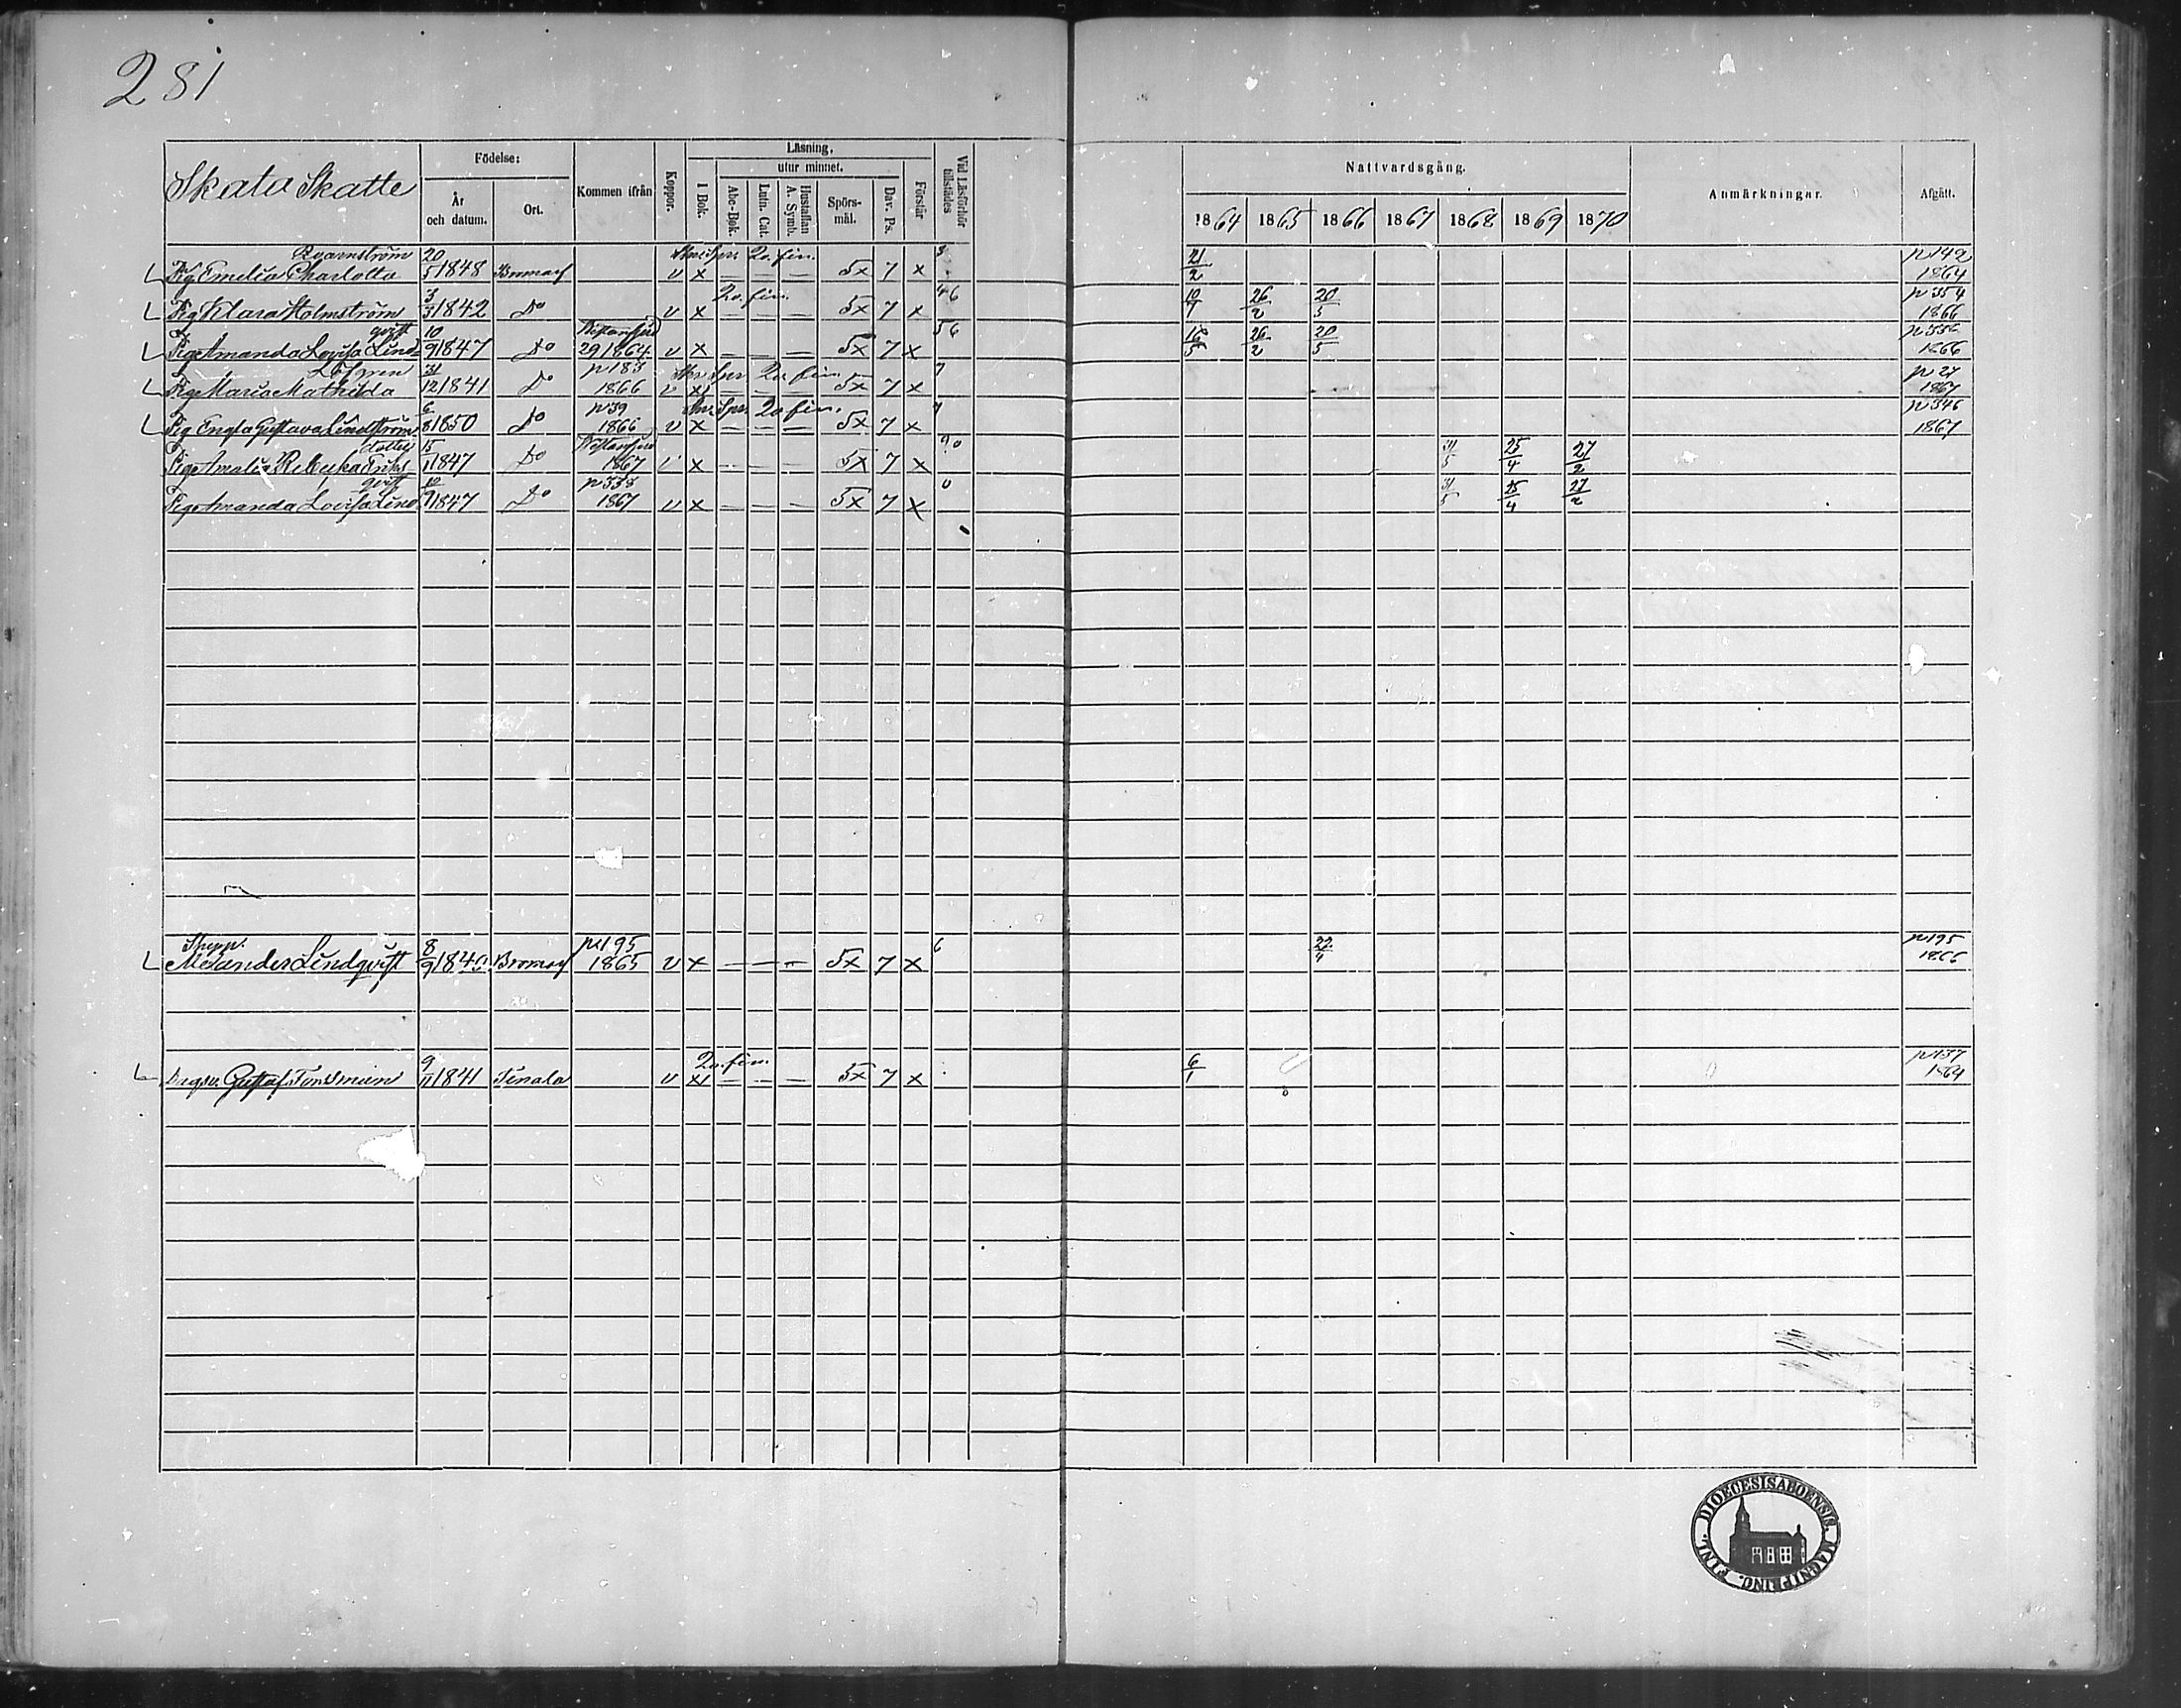 281
Skata Skatte
Födelse:
År och datum.
Ort.
Kommen ifrån
Koppor.
Läsning,
utur minnet.
I Bok.
Abc-Bok.
Luth. Cat.
Hustaflan A. Symb.
Spörs-mål.
Dav. Ps.
Förstår
Vid Läsförhör tillstädes
Nattvardsgång.
1864 1865 1866 1867 1868 1869 1870
Anmärkningar.
Afgått.
Qvarnström
Pig. Emelia Charlotta 20/5 1848 Bromarf v x — — — 5x 7 x 3 21/2 p 142 1864
Pig Klara Holmström 3/3 1842 Do v x — — — 5x 7 x 46 10/7 26/2 20/5 p 354 1866
Pig. Amanda Lovisa Lindqvist 10/9 1847 Do 29 1864 v x — — — 5x 7 x 56 26/2 20/5 1866
Löfgren
Pig. Maria Mathilda 31/12 1841 Do p 183 1866 v x — — — 5x 7 x 7 p 27 1867
Pig Engla Gustava Lindström 6/8 1850 Do p 39 1866 v x — — — 5x 7 x 7 p 346 1867
Pig. Amalia Rebecka Eriksdotter 15/1 1847 Do 1867 x — — — 5x 7 x 90 31/5 25/4 27/2
Pig. Amanda Lovisa Lindqvist 10/9 1847 Do p 338 1867 v x — — — 5x 7 x 0 31/5 25/4 27/2
Skepp.
Alexander Lindqvist 8/9 Bromarf p 195 1865 v x — — — 5x 7 x 6 22/4 p 195 1866
Gustaf 9/11 1841 Tenala v x — — — 5x 7 x 6/1 p 137 1864
DIOECESIS ABOENSIS. MAGNI PRINC. FINL.